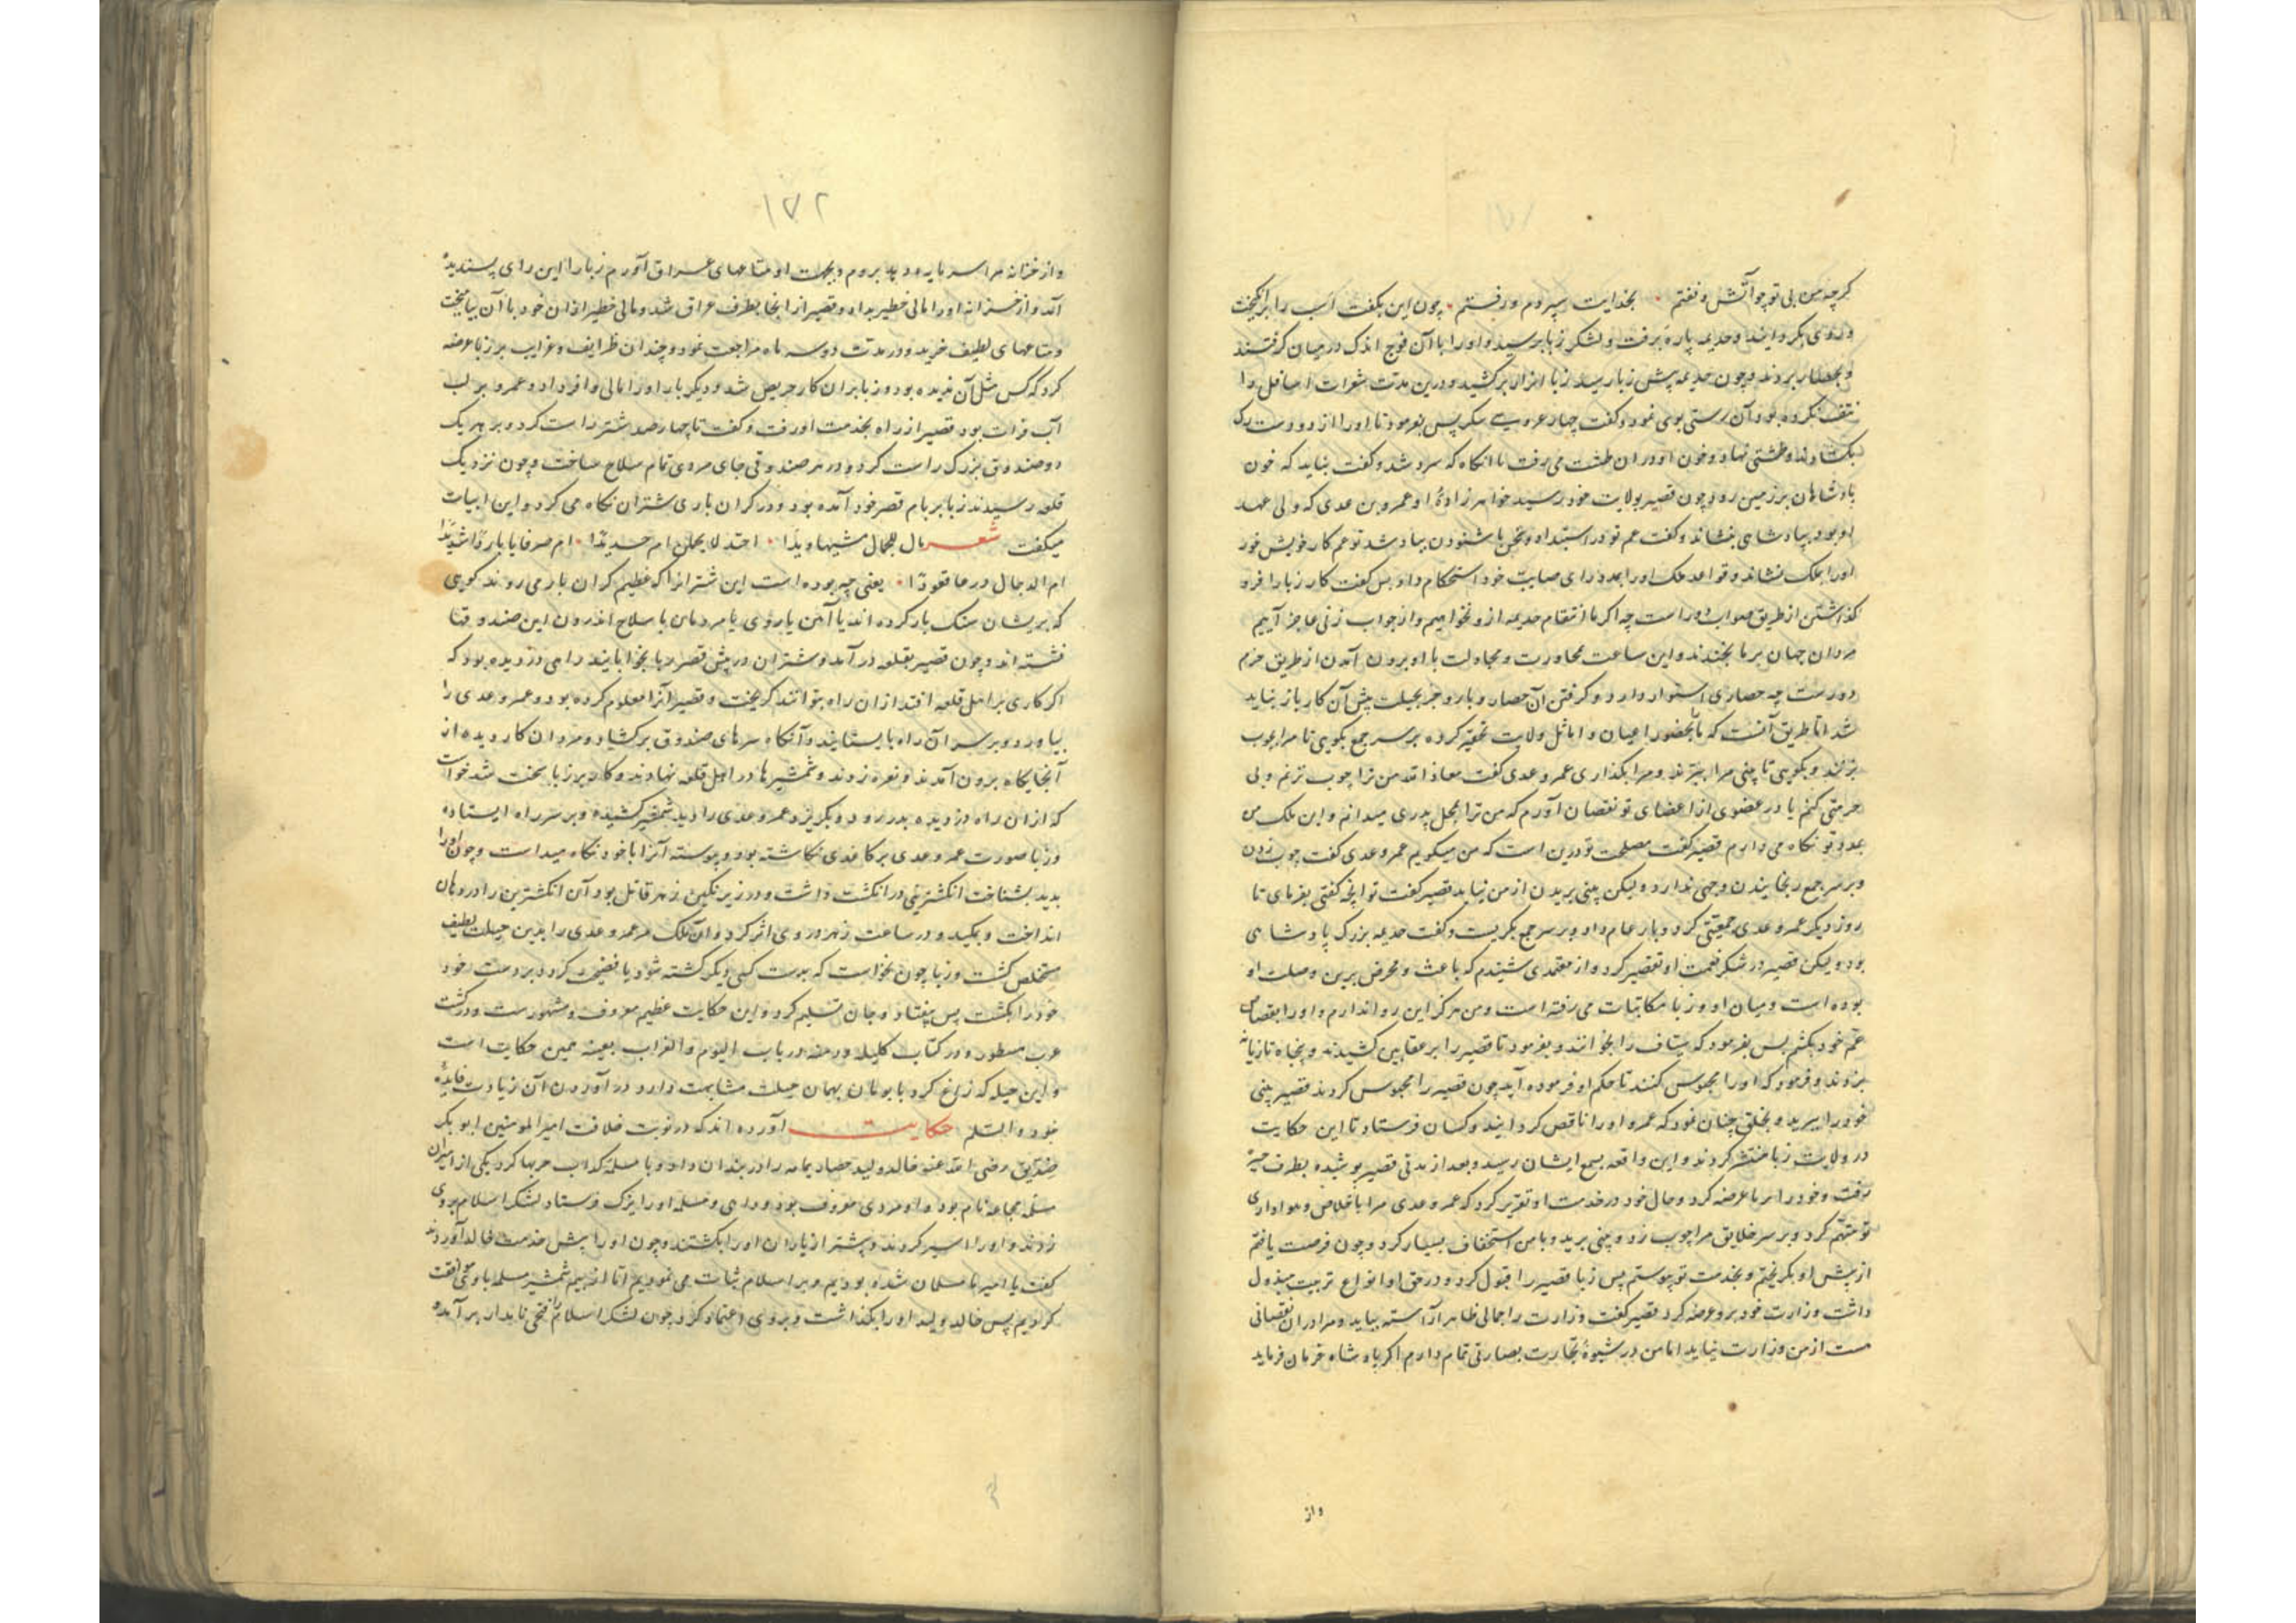 کرچه من بی تو چو آتش و نفتم · بخدایت سپردم و رفتم · چون این بگفت اسب را برانگیخت
و روی بگردانید و جذیمه پاره برفت و لشکر زبا برسید و او را با آن فوج اندک در میان گرفتند
و بحصار بردند و چون جذیمه پیش زبا رسید زبا ازار برکشید و درین مدت شعرات اسافل را
نتف نکرده بود و آن رستی بوی نمود و گفت پس بفرمود تا او را از دو دست رک
بکشادند و طشتی نهاد و خون او در ان طشت می رفت تا انکاه که سرد شد و گفت نباید که خون
پادشاهان بر زمین رود چون قصیر بولایت خود رسید خواهرزاده او عمرو بن عدی که ولی عهد
او بود بپادشاهی بنشاند و گفت عم تو در استبداد و سخن ناشنودن بباد شد تو غم کار خویش خور
او را بملک نشاند و قواعد ملک او را بمدد رای صایب خود استحکام داد پس گفت کار زبا را فرو
گذاشتن از طریق صواب دور است چه اگر ما انتقام جذیمه ازو نخواهیم و از جواب زنی عاجز آییم
مردان جهان بر ما بخندند و این ساعت محاورت و مجادلت با او برون آمدن از طریق حزم
دورست چه حصاری استوار دارد و گرفتن آن حصار و بارو جز بحیلت پیش آن کار باز نیاید
شد اما طریق آنست که تا بحضور اعیان و اماثل ولایت تحقیر کرده بر سر جمع بگویی تا مرا چوب
بزنند و بگویی تا بینی مرا ببرند و مرا بگذاری عمرو عدی گفت معاذ الله من ترا چوب نزنم و بی
حرمتی کنم یا در عضوی از اعضای تو نقصان آورم که من ترا بمحل پدری میدانم و این ملک من
بمدد تو نگاه می دارم قصیر گفت مصلحت تو درین است که من میگویم عمرو عدی گفت چوب زدن
و بر سر جمع رنجانیدن وجهی ندارد و لیکن بینی بریدن از من نیاید قصیر گفت تو آنچه گفتی بفرمای تا
روز دیگر عمرو عدی جمعیتی کرد و بار عام داد و بر سر جمع بگریست و گفت جذیمه بزرگ پادشاهی
بود و لیکن قصیر در شکر نعمت او تقصیر کرد و از معتمدی شنیدم که باعث و محرض برین وصلت او
بوده است و میان او و زبا مکاتبات می رفته است و من هرگز این روا ندارم و او را بقصاص
عم خود بکشم پس بفرمود که سیاف را بخوانند و بفرمود تا قصیر را بر عقابین کشیدند و پنجاه تازیانه
بزدند و فرمود که او را محبوس کنند تا حکم او فرموده آید چون قصیر را محبوس کردند قصیر بینی
خود را ببرید و بخلق چنان نمود که عمرو او را ناقص گردانید و کسان فرستاد تا این حکایت
در ولایت زبا منتشر کردند و این واقعه بسمع ایشان رسید و بعد از مدتی قصیر پوشیده بطرف حیره
برفت و خود را بر زبا عرضه کرد و حال خود در خدمت او تقریر کرد که عمرو عدی مرا باخلاص و هواداری
تو متهم کرد و بر سر خلایق مرا چوب زد و بینی برید و با من استخفاف بسیار کرد و چون فرصت یافتم
از پیش او بگریختم و بخدمت تو پیوستم پس زبا قصیر را قبول کرد و در حق او انواع تربیت مبذول
داشت وزارت خود برو عرضه کرد قصیر گفت وزارت را جمالی ظاهر آراسته بباید و مرا در ان نقصانی
هست از من وزارت نیاید اما من در شیوه تجارت بصارتی تمام دارم اگر پادشاه فرمان فرماید
واز
۱۷۲
و از خزانه مرا سرمایه دهد بروم و بجهت او متاعهای عراق آورم زبا را این رای پسندیده
آمد و از خزانه او را مالی خطیر بداد و قصیر از انجا بطرف عراق شد و مالی خطیر از ان خود با آن بیامیخت
و متاعهای لطیف خرید و در مدت دو سه ماه مراجعت نمود و چندان ظرایف و غرایب بر زبا عرضه
کرد که کس مثل آن ندیده بود و زبا بران کار حریص شد و دیگر بار او را مالی وافر داد و عمرو بر لب
آب فرات بود قصیر از راه بخدمت او رفت و گفت تا چهارصد شتر راست کرد و بر هر یک
دو صندوق بزرگ راست کرد و در هر صندوقی جای مردی تمام سلاح ساخت و چون نزدیک
قلعه رسیدند زبا بر بام قصر خود آمده بود و در گران باری شتران نگاه می کرد و این ابیات
میگفت شعر مال للجمال مشیها ویدا · اجندلا یحملن ام حدیدا · ام صرفانا باردا شدیدا
ام الرجال در عا قعودا · یعنی چه بوده است این شتران را که عظیم گران بار می روند گویی
که بریشان سنگ بار کرده اند یا آهن یا روی یا مردمان با سلاح اندرون این صندوقها
نشسته اند و چون قصیر بقلعه در آمد و شتران در پیش قصر زبا بخوابانیدند راهی دزدیده بود که
اگر کاری بر اهل قلعه افتد از ان راه بتوانند گریخت و قصیر آنرا معلوم کرده بود و عمرو عدی را
بیاورد و بر سر آن راه بایستانید و آنگاه سرهای صندوق برگشاد و مردان کار دیده از
آنجایگاه برون آمدند و نعره زدند و شمشیرها در اهل قلعه نهادند و کار بر زبا سخت شد خواست
که از ان راه دزدیده بدر رود و بگریزد عمرو عدی را دید شمشیر کشیده و بر سر راه ایستاده
و زبا صورت عمرو عدی بر کاغذی نگاشته بود و پیوسته آنرا با خود نگاه میداشت و چون او را
بدید بشناخت انگشترینی در انگشت داشت و در زیر نگین زهر قاتل بود آن انگشترین را در دهان
انداخت و بمکید و در ساعت زهر در وی اثر کرد و آن ملک مر عمرو عدی را بدین حیلت لطیف
مستخلص گشت و زبا چون نخواست که بدست کسی دیگر کشته شود یا فضیحت گردد بر دست خود
خود را بکشت پس بیفتاد و جان تسلیم کرد و این حکایت عظیم معروف و مشهورست و در کتب
عرب مسطور و در کتاب کلیله و دمنه در باب البوم والغراب بعینه همین حکایت است
و این حیله که زاغ کرد با بومان بهمان حیلت مشابهت دارد در آوردن آن زیادت فایده
نبود والسلم حکایت آورده اند که در نوبت خلافت امیر المومنین ابو بکر
صدیق رضی الله عنه خالد ولید حصار یمامه را در بندان داد و با مسیلمه کذاب حربها کرد یکی از امیران
مسیلمه مجاعه نام بود و او مردی معروف بود و داهی و مسیلمه او را بیزک فرستاد لشکر اسلام بروی
زدند و او را اسیر کردند و بیشتر از یاران او را بکشتند و چون او را پیش خدمت خالد آوردند
گفت یا امیر ما مسلمان شده بودیم و بر اسلام ثبات می نمودیم اما از بیم شمشیر مسیلمه با وی موافقت
کردیم پس خالد ولید او را بگذاشت و بروی اعتماد کرد چون لشکر اسلام را فتحی نامدار بر آمد و